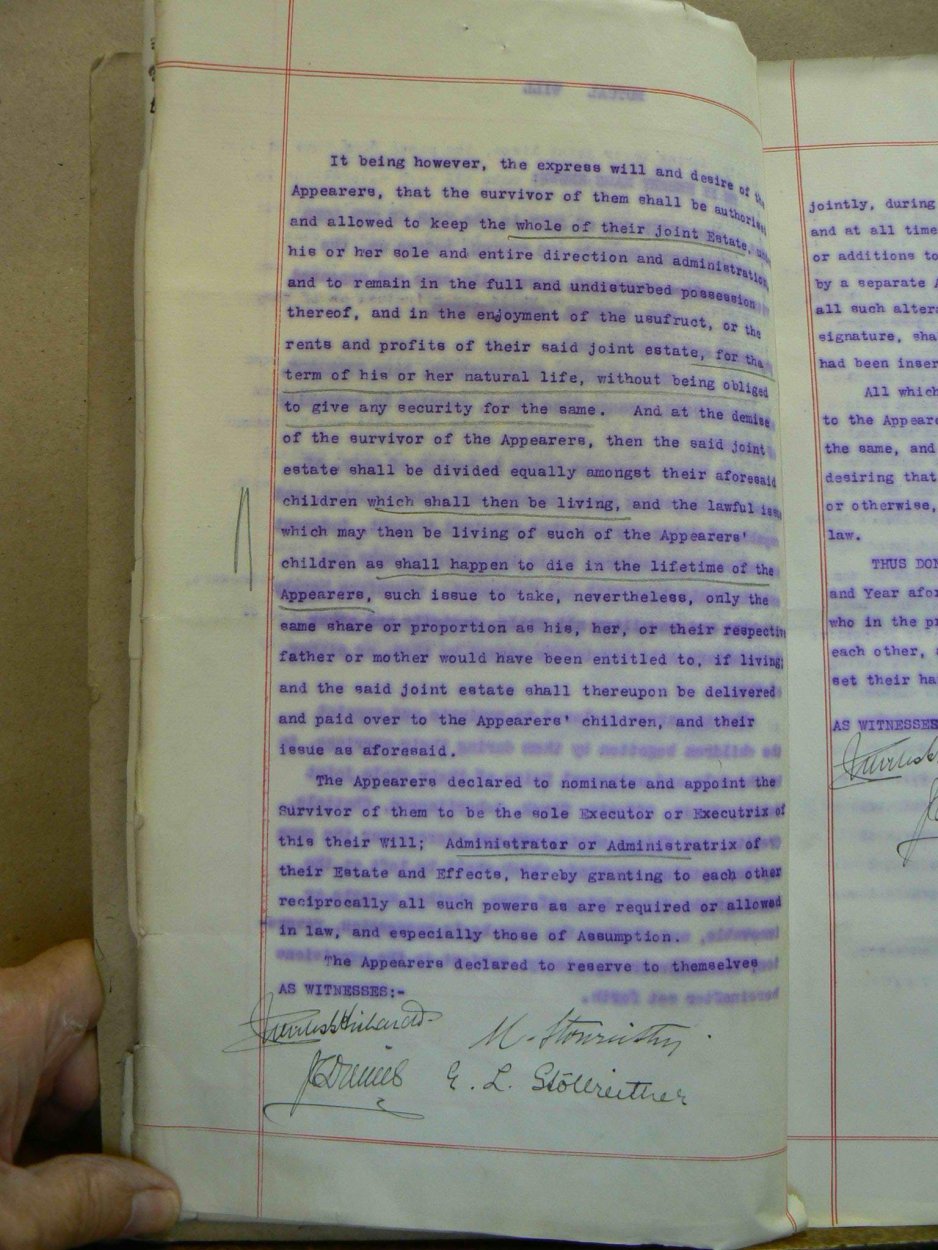 MUTUAL WILL
It being however, the express will and desire of the
Appearers, that the survivor of them shall be authorised
and allowed to keep the whole of their joint Estate,
his or her sole and entire direction and administration,
and to remain in the full and undisturbed possession
thereof, and in the enjoyment of the usufruct, or the
rents and profits of their said joint estate, for the
term of his or her natural life, without being obliged
to give any security for the same. And at the demise
of the survivor of the Appearers, then the said joint
estate shall be divided equally amongst their aforesaid
children which shall then be living, and the lawful issue
which may then be living of such of the Appearers'
children as shall happen to die in the lifetime of the
Appearers, such issue to take, nevertheless, only the
same share or proportion as his, her, or their respective
father or mother would have been entitled to, if living;
and the said joint estate shall thereupon be delivered
and paid over to the Appearers' children, and their
issue as aforesaid.
The Appearers declared to nominate and appoint the
Survivor of them to be the sole Executor or Executrix of
this their Will; Administrator or Administratrix of
their Estate and Effects, hereby granting to each other
reciprocally all such powers as are required or allowed
in law, and especially those of Assumption.
The Appearers declared to reserve to themselves
AS WITNESSES:-
E. L. Stöllreither
jointly, during
and at all time
or additions to
by a separate A
all such altera
signature, sha
had been inser
All which
to the Appeare
the same, and
desiring that
or otherwise,
law.
THUS DON
and Year afor
who in the pr
each other,
set their ha
AS WITNESSES